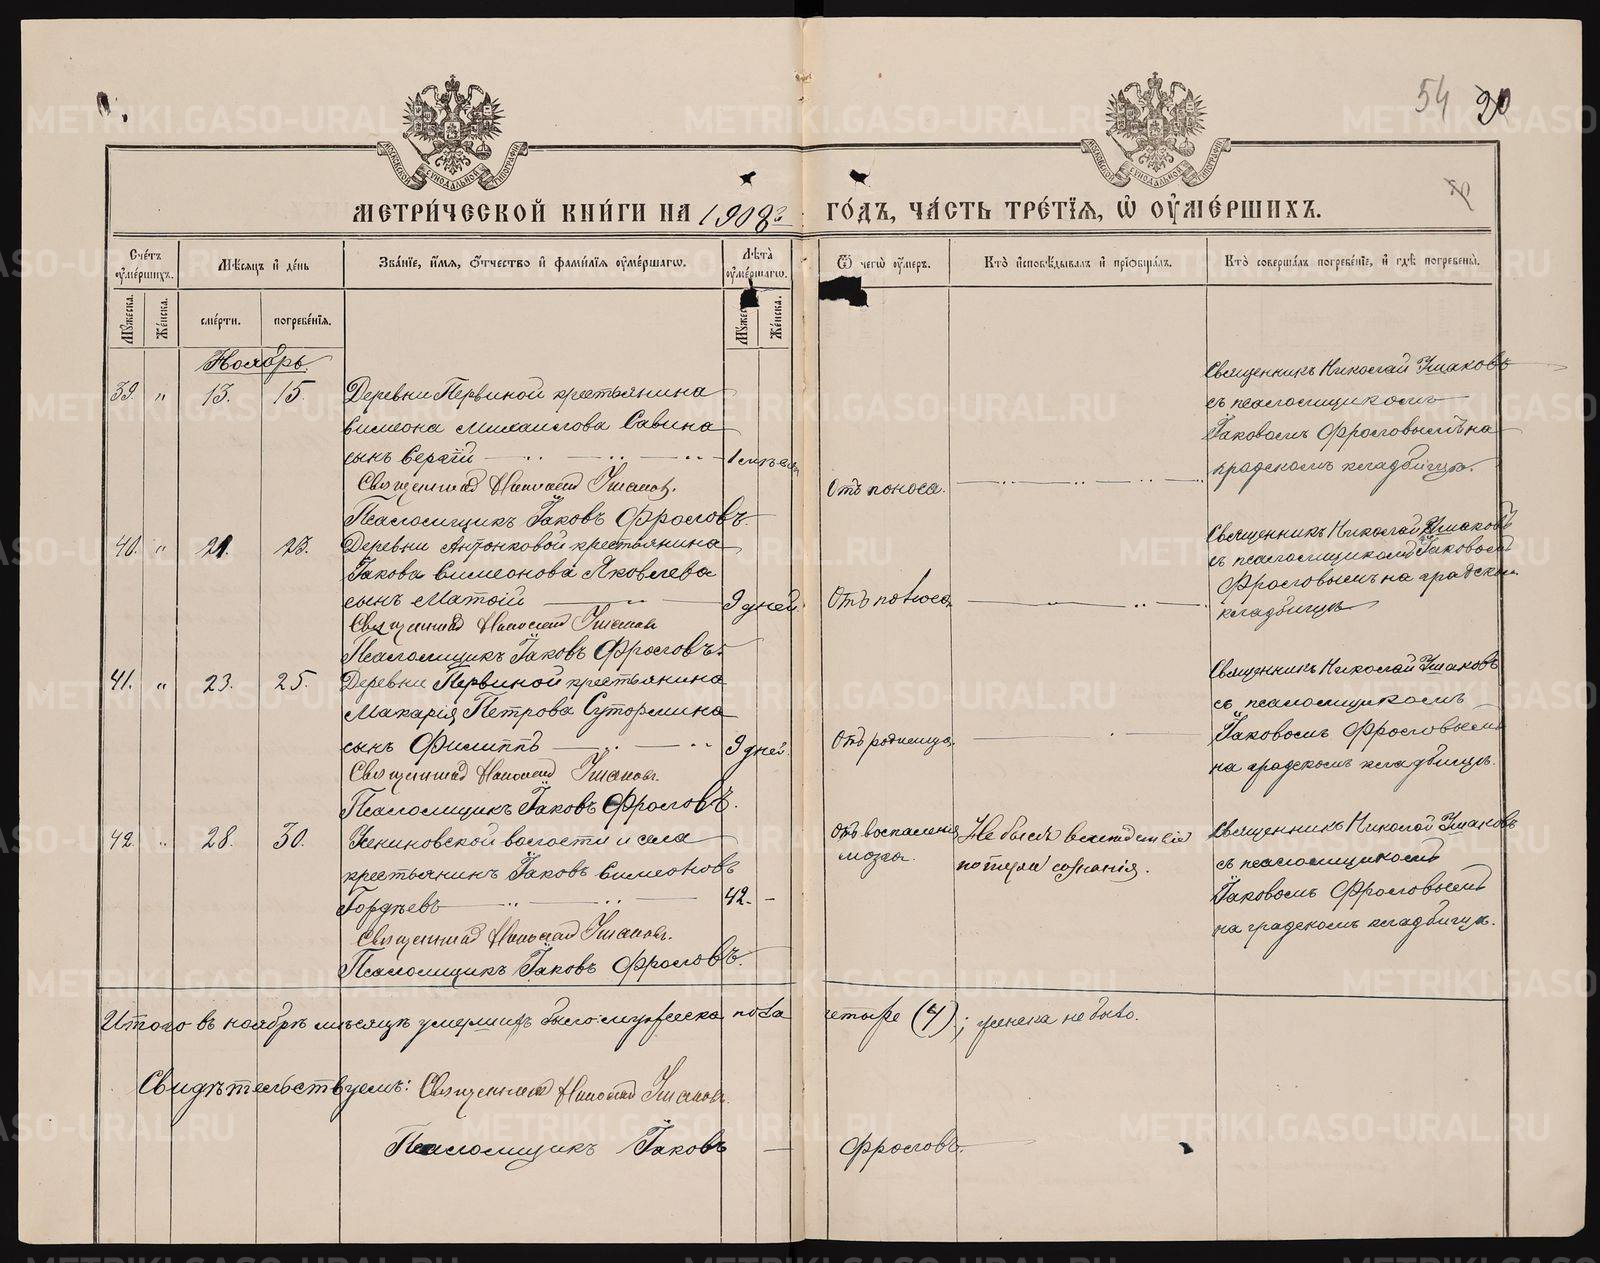 54 20
МЕТРИ́ЧЕСКОЙ КНИ́ГИ НА 1908 г. ГО́ДЪ, ЧА́СТЬ ТРЕ́ТІЯ, Ѽ ОУ҆МЕ́РШИХЪ.
Сче́тъ оу҆ме́ршихъ.
Мѣ́сяцъ и҆ де́нь
Зва́нїе, и҆́мя, о҆́тчество и҆ фами́лїя оу҆ме́ршагѡ.
Лѣ́та оу҆ме́ршагѡ.
Ѿ чегѡ̀ оу҆́меръ.
Кто̀ и҆сповѣ́дывалъ и҆ прїѡбща́лъ.
Кто̀ соверша́лъ погребе́нїе, и҆ гдѣ̀ погребены̀.
Му́жеска.
Же́нска.
сме́рти.
погребе́нїя.
Же́нска.
Ноябрь.
39. " 13. 15.
Деревни Первиной крестьянина
Симеона Михаилова Савина
сынъ Сергій
Священникъ Николай Ушаковъ.
Псаломщикъ Іаковъ Фроловъ.
Отъ поноса.
Священникъ Николай Ушаковъ
съ псаломщикомъ
Іаковомъ Фроловымъ на
градскомъ кладбищѣ.
40. " 21. 23.
Деревни Антонковой крестьянина
Іакова Симеонова Яковлева
сынъ Матѳій 9 дней.
Священникъ Николай Ушаковъ
Псаломщикъ Іаковъ Фроловъ.
Отъ поноса.
Священникъ Николай Ушаковъ
съ псаломщикомъ Іаковомъ
Фроловымъ на градском
кладбищѣ
41. " 23. 25.
Деревни Первиной крестьянина
Макарія Петрова Сутормина
сынъ Филиппъ 9 дней.
Священникъ Николай Ушаковъ.
Псаломщикъ Іаковъ Фроловъ.
Отъ родимца.
Священникъ Николай Ушаковъ
съ псаломщикомъ
Іаковомъ Фроловымъ
на градскомъ кладбищѣ.
42. " 28. 30.
волости и села
крестьянинъ Іаковъ Симеоновъ
Гордѣевъ 42.
Священникъ Николай Ушаковъ.
Псаломщикъ Іаковъ Фроловъ.
Отъ воспаленія
мозга.
Не былъ вслѣдствіе
потери сознанія.
Священникъ Николай Ушаковъ
съ псаломщикомъ
Іаковомъ Фроловымъ
на градскомъ кладбищѣ.
Итого въ ноябрѣ мѣсяцѣ умершихъ было: мужеска пола четыре (4); женска не было.
Свидѣтельствуемъ: Священникъ Николай Ушаковъ.
Псаломщикъ Іаковъ Фроловъ.
METRIKI.GASO-URAL.RU